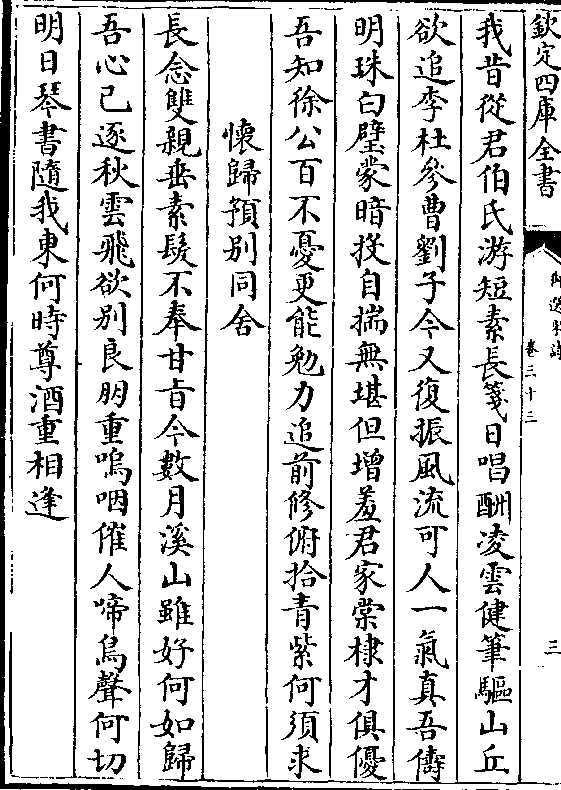 欽定四庫全書
卷三十三
三
我昔從君伯氏游短素長箋日唱酬凌雲健筆驅山丘
欲追李杜參曹劉子今又復振風流可人一氣真吾儔
明珠白璧蒙暗投自揣無堪但增羞君家棠棣才俱優
吾知徐公百不憂更能勉力追前修俯拾青紫何須求
懷歸預别同舍
長念雙親垂素髮不奉甘旨今數月溪山雖好何如歸
吾心已逐秋雲飛欲别良朋重嗚咽催人啼鳥聲何切
明日琴書隨我東何時尊酒重相逢